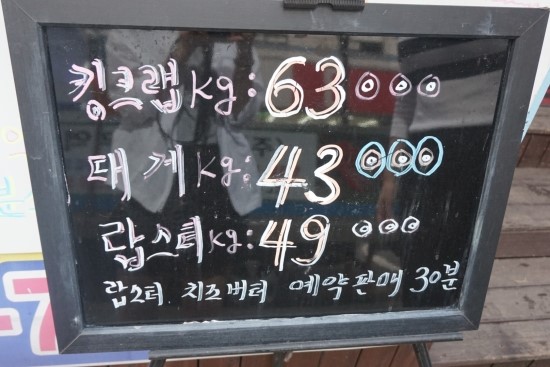 킹크랩 kg: 63000
대게 kg: 43000
랍스터 kg: 49000
랍스터 치즈버터 예약판매 30분